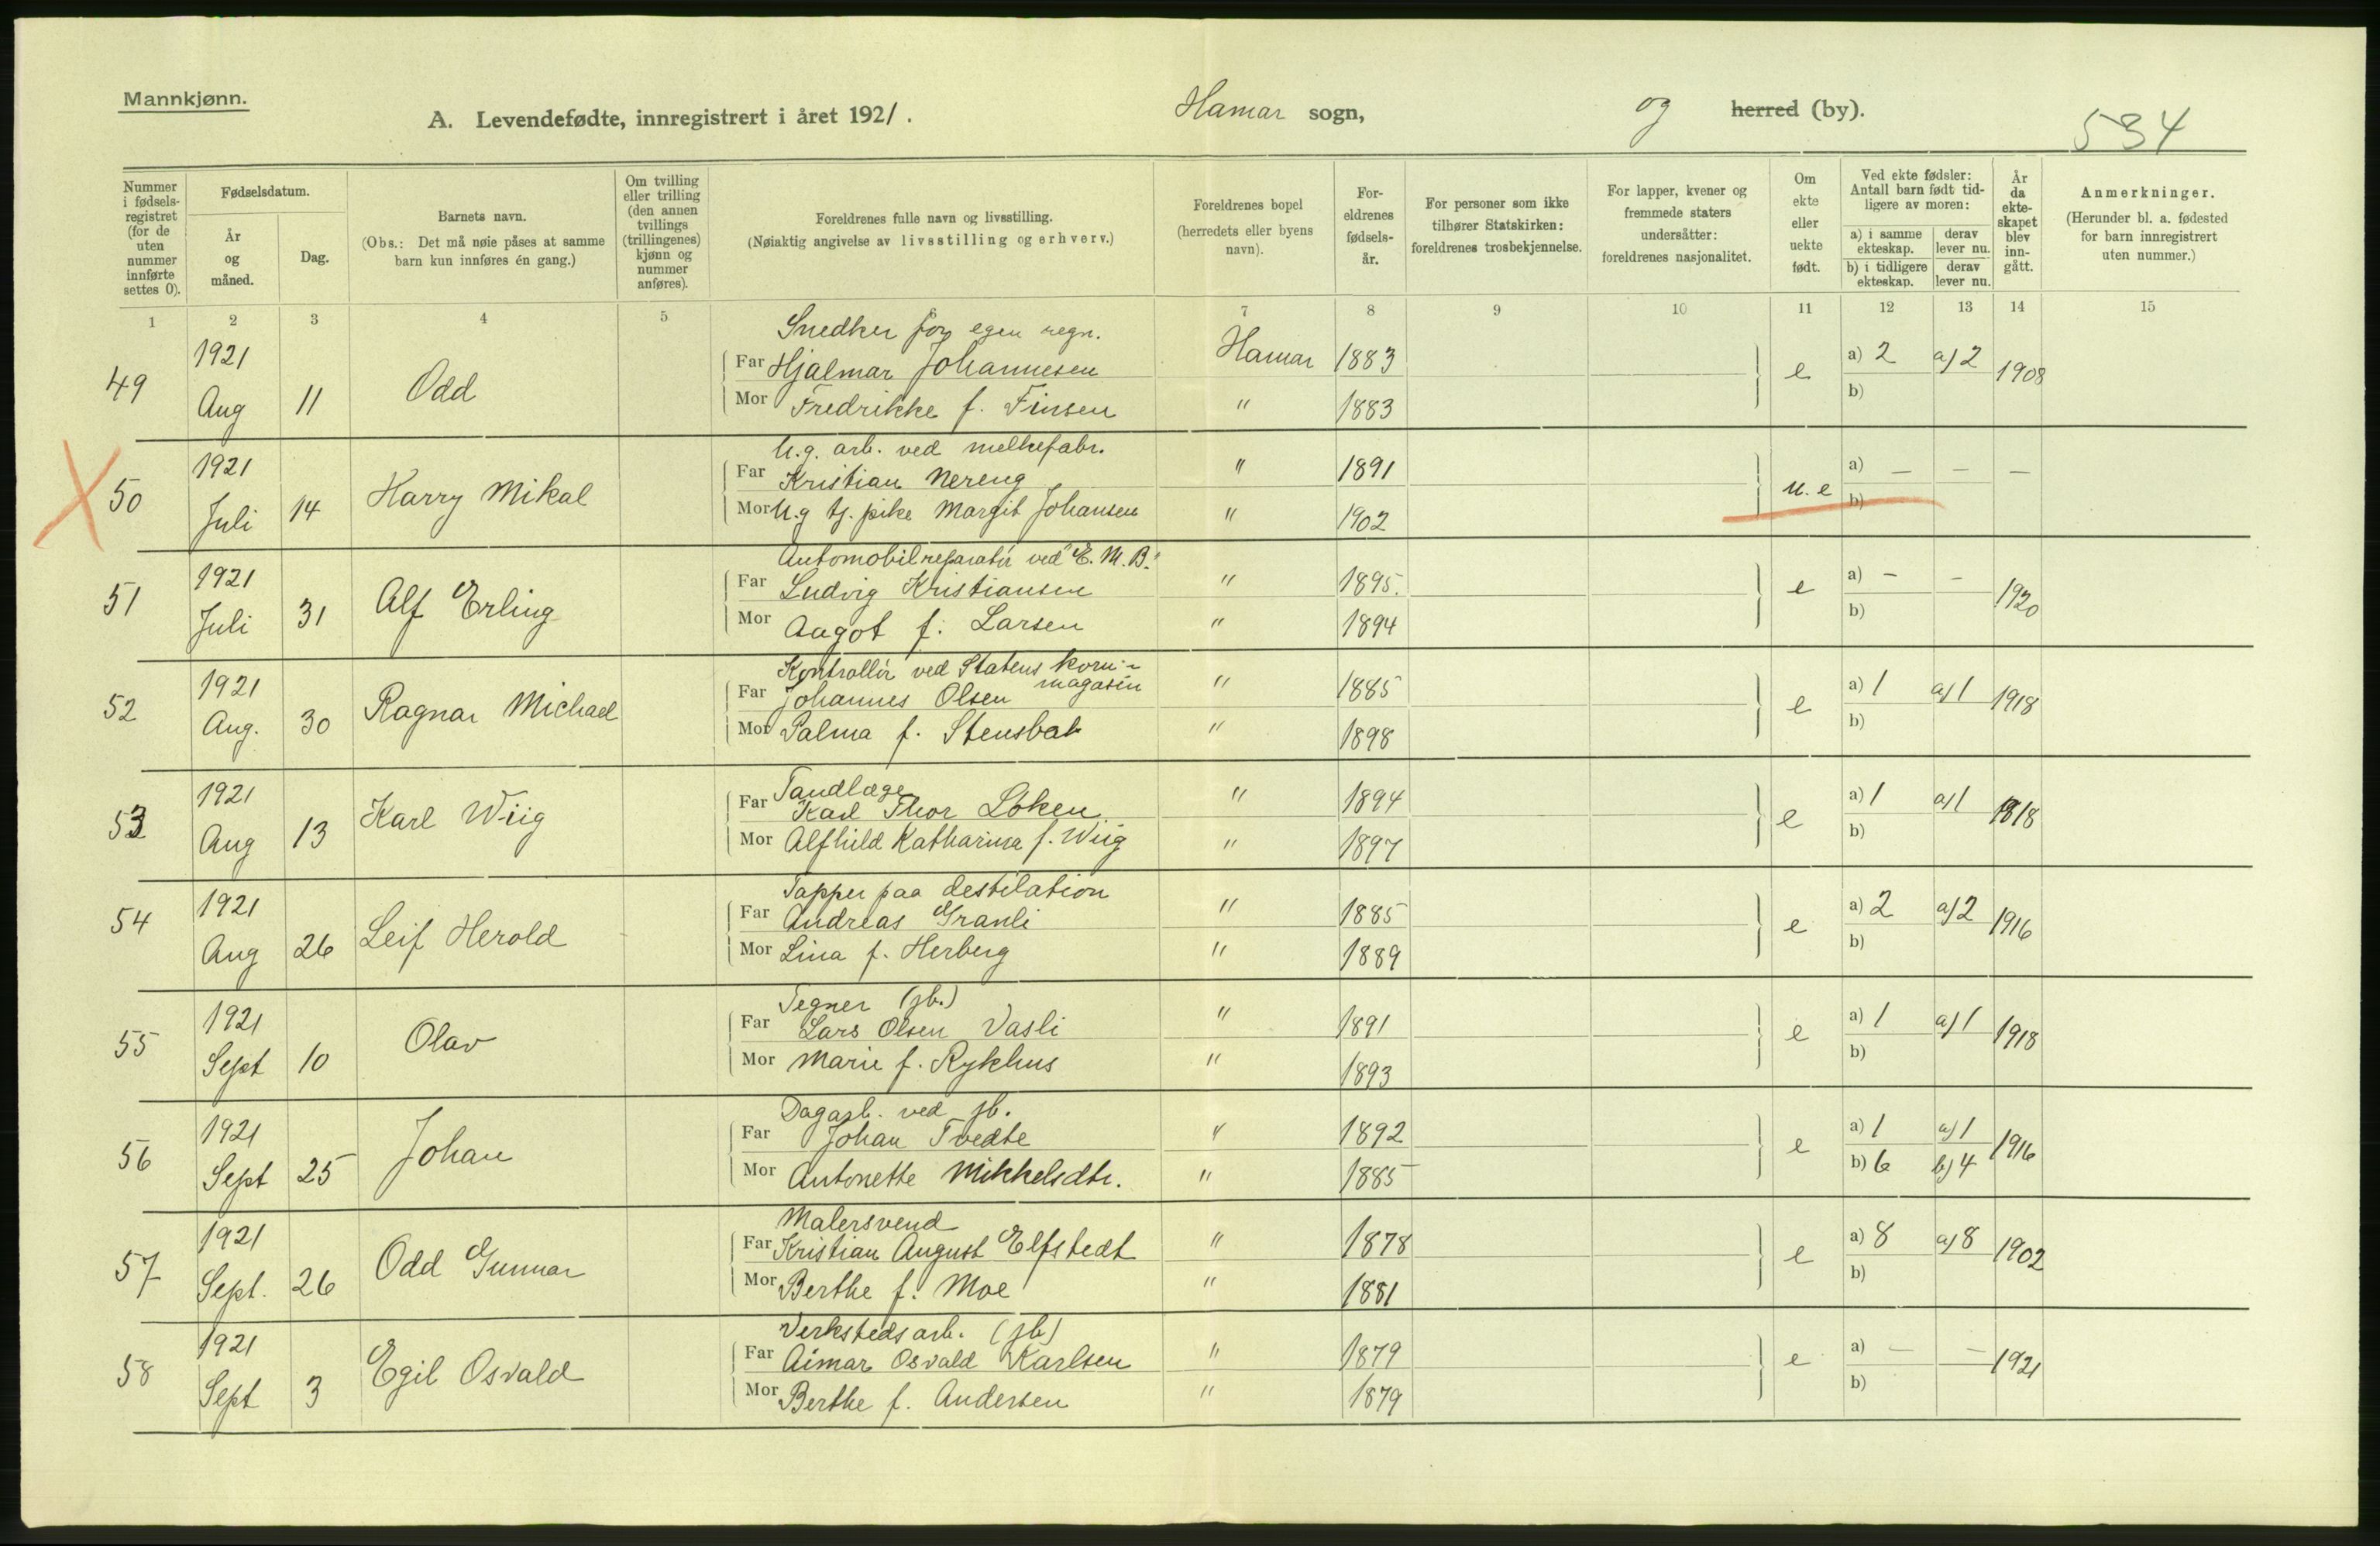 Mannkjønn.
A. Levendefødte, innregistrert i året 1921. Hamar sogn, og herred (by). 534
Nummer i fødselsregistret (for de uten nummer innførte settes 0).
Fødselsdatum.
År og måned.
Dag.
Barnets navn.
(Obs.: Det må nøie påses at samme barn kun innføres én gang.)
Om tvilling eller trilling (den annen tvillings (trillingenes) kjønn og nummer anføres).
Foreldrenes fulle navn og livsstilling.
(Nøiaktig angivelse av livsstilling og erhverv.)
Foreldrenes bopel (herredets eller byens navn).
Foreldrenes fødselsår.
For personer som ikke tilhører Statskirken: foreldrenes trosbekjennelse.
For lapper, kvener og fremmede staters undersåtter: foreldrenes nasjonalitet.
Om ekte eller uekte født.
Ved ekte fødsler: Antall barn født tidligere av moren:
a) i samme ekteskap. derav lever nu.
b) i tidligere ekteskap. derav lever nu.
År da ekteskapet blev inngått.
Anmerkninger.
(Herunder bl. a. fødested for barn innregistrert uten nummer.)
1 2 3 4 5 6 7 8 9 10 11 12 13 14 15
Snedker for egen regn.
49 1921 Aug 11 Odd Far Hjalmar Johannesen Hamar 1883 e a) 2 a) 2 1908
Mor Fredrikke f. Finsen " 1883 b)
U.g. arb. ved melkefabr.
50 1921 Juli 14 Harry Mikal Far Kristian Nereng " 1891 u.e a) – – –
Mor U.g tj. pike Margit Johansen " 1902 b)
Automobilreparatør ved "E.M.B."
51 1921 Juli 31 Alf Erling Far Ludvig Kristiansen " 1895. e a) – – 1920
Mor Aagot f. Larsen " 1894 b)
Kontrollør ved Statens kornmagasin
52 1921 Aug. 30 Ragnar Michael Far Johannes Olsen " 1885 e a) 1 a) 1 1918
Mor Palma f. Stensbak " 1898 b)
Tandlæge
53 1921 Aug 13 Karl Wiig Far Karl Thor Løken " 1894 e a) 1 a) 1 1918
Mor Alfhild Katharina f. Wiig " 1897 b)
Tapper paa destilation
54 1921 Aug 26 Leif Herold Far Andreas Granli " 1885 e a) 2 a) 2 1916
Mor Lina f. Herberg " 1889 b)
Tegner (jb.)
55 1921 Sept 10 Olav Far Lars Olsen Vasli " 1891 e a) 1 a) 1 1918
Mor Marie f. Rykhus " 1893 b)
Dagarb. ved jb.
56 1921 Sept 25 Johan Far Johan Tvedte " 1892 e a) 1 a) 1 1916
Mor Antonette Mikkelsdtr. " 1885 b) 6 b) 4
Malersvend
57 1921 Sept. 26 Odd Gunnar Far Kristian August Elfstedt " 1878 e a) 8 a) 8 1902
Mor Berthe f. Moe " 1881 b)
Verkstedsarb. (jb)
58 1921 Sept 3 Egil Osvald Far Aimar Osvald Karlsen " 1879 e a) – – 1921
Mor Berthe f. Andersen " 1879 b)